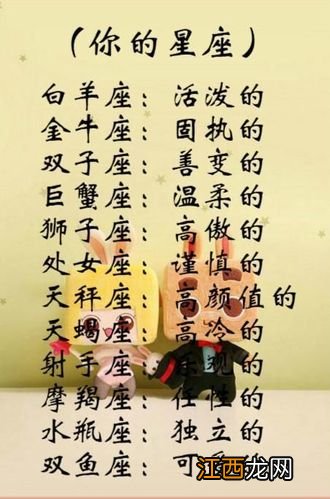 (你的星座)
白羊座：活泼的
金牛座：固执的
双子座：善变的
巨蟹座：温柔的
狮子座：高傲的
处女座：谨慎的
天秤座：高颜值的
天蝎座：高冷的
射手座：乐观的
摩羯座：任性的
水瓶座：独立的
双鱼座：可
江西龙网